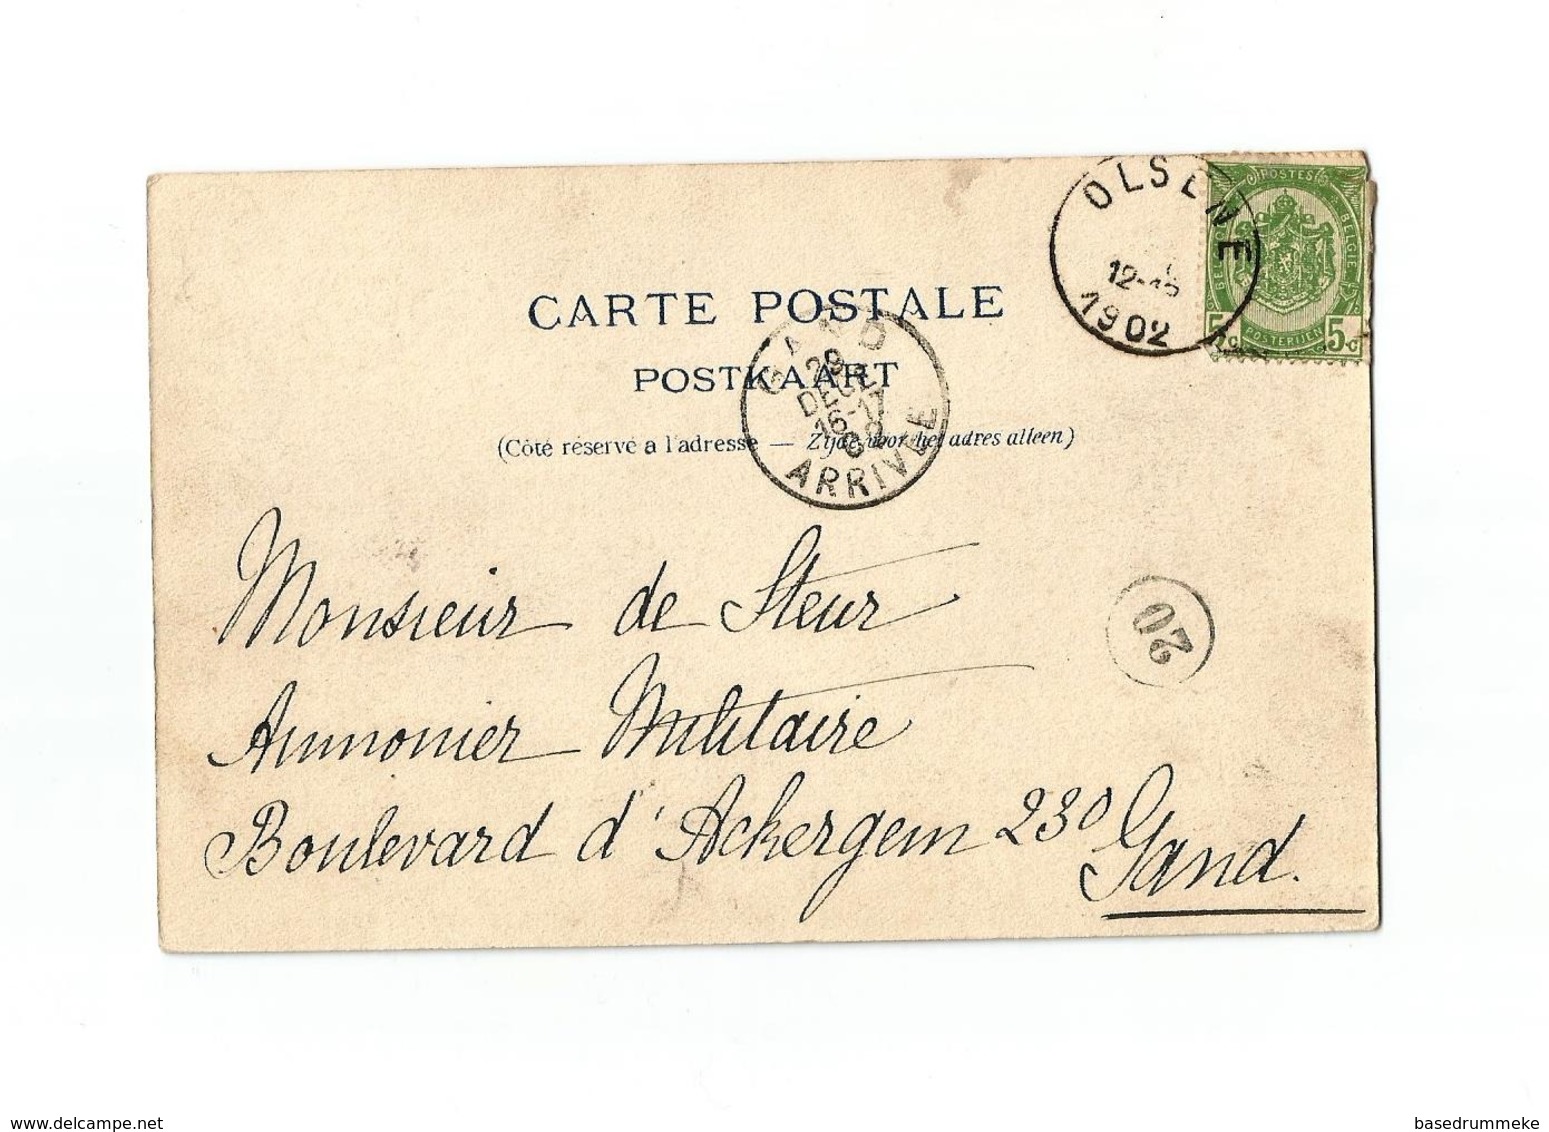 OLSENE
12-15
1902
POSTES
BELGIQUE
BELGIË
POSTERIJEN
5c 5c
CARTE POSTALE
POSTKAART
(Côté réservé a l'adresse — Zijde voor het adres alleen)
GAND
29
DECE
16-17
02
ARRIVEE
20
Monsieur de Steur
Aumonier Militaire
Boulevard d'Ackergem 230
Gand.
www.delcampe.net
basedrummeke